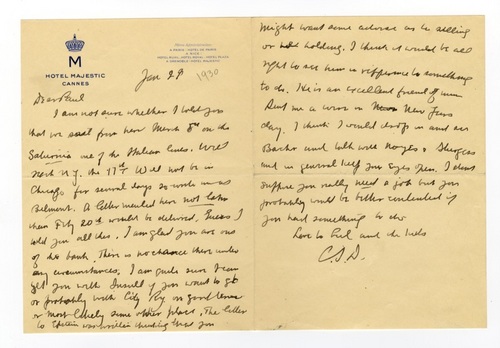 M
HOTEL MAJESTIC
CANNES
Jan 29
1930
Dear Paul
I am not sure whether I told you
that we sail from here March 8th on the
Saturnia one of the Italian lines. We
reach N.Y. the 17th Will not be in
Chicago for several days so write us at
Belmont. A letter mailed here not later
than Feby 20th would be delivered. Guess I
told you all this. I am glad you are out
of the bank. There is no chance there under
any circumstances. I am quite sure I can
get you with Insull if you want to go
or probably with City Ry on good terms
or most likely some other place. The letter
to was written thinking that you
might want some advice as to selling
or holding. I think it would be all
right to see him in reference to something
to do. He is an excellent friend of mine
Sent me a wire on New Years
day. I think I would drop in and see
and talk with Noyes &
and in general keep your eyes open. I don't
suppose you really need a job but you
probably would be better contented if
you had something to do
Love to and the kids
C.S.D.